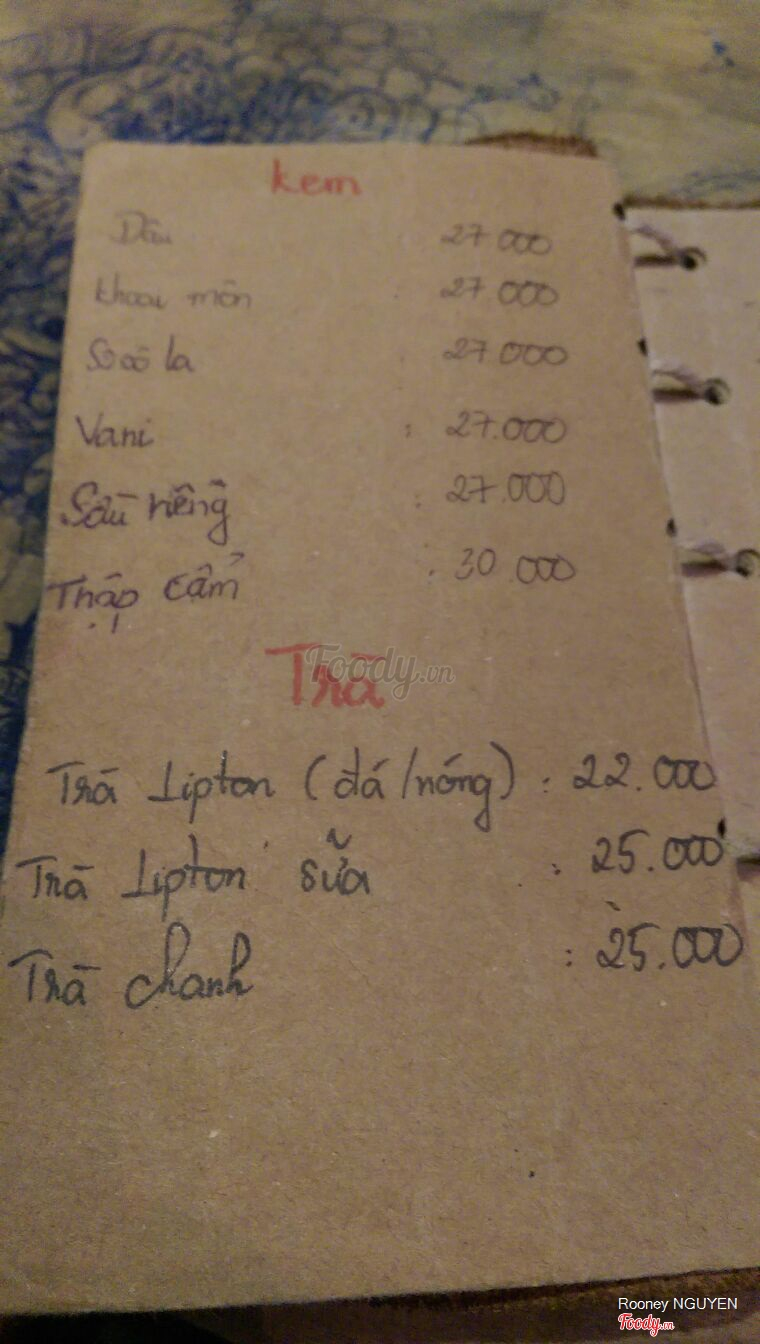 kem
Dâu : 27 000
khoai môn : 27 000
Sô cô la : 27.000
Vani : 27.000
Sầu riêng : 27.000
Thập cẩm : 30 000
Trà
Foody.vn
Trà Lipton (đá/nóng) : 22.000
Trà Lipton sữa : 25.000
Trà chanh : 25.000
Rooney NGUYEN
Foody.vn